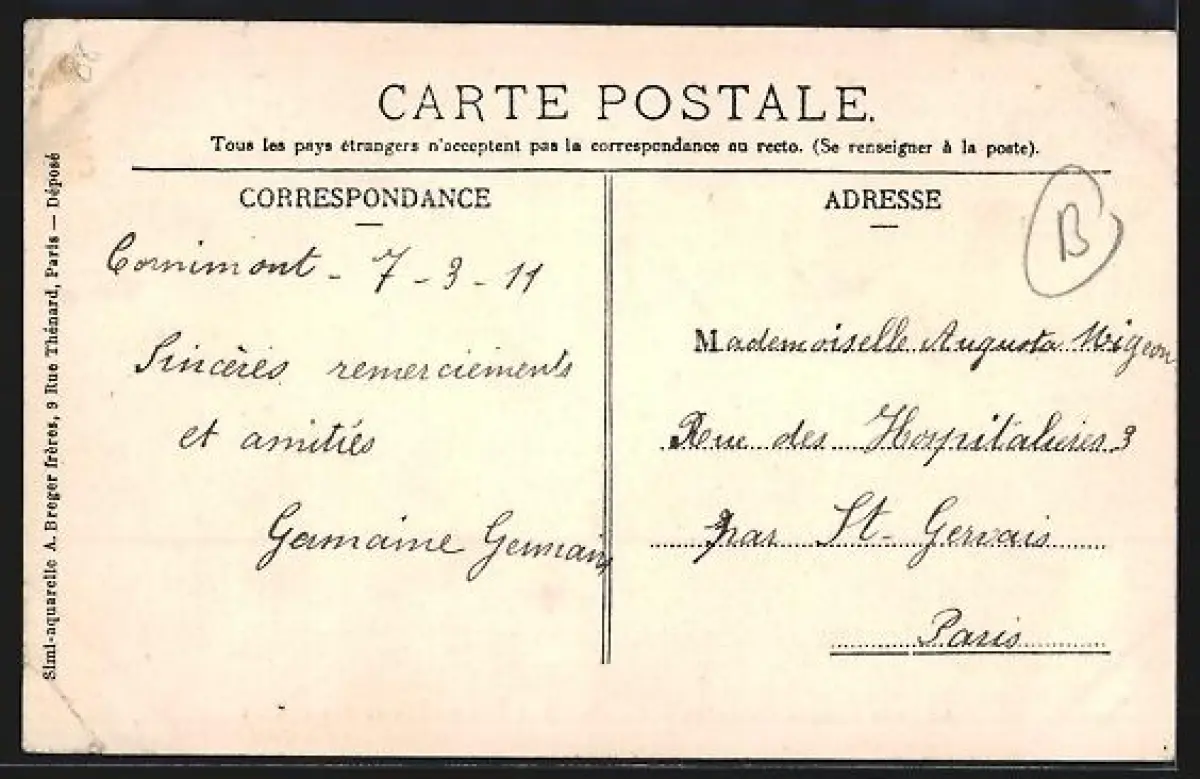 CARTE POSTALE.
Tous les pays étrangers n'acceptent pas la correspondance au recto. (Se renseigner à la poste).
CORRESPONDANCE
Cornimont - 7 - 3 - 11
Sincères remerciements
et amitiés
Germaine Germain
ADRESSE
B
Mademoiselle Augusta Migeon
Rue des Hospitalières 3
par St-Gervais
Paris
Simi-aquarelle A. Breger frères, 9 Rue Thénard, Paris — Déposé